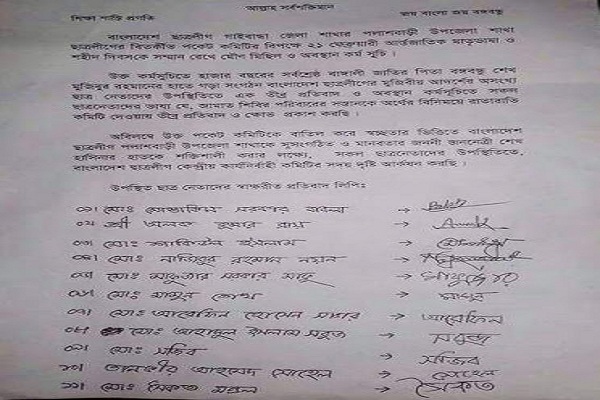 আল্লাহ সর্বশক্তিমান
শিক্ষা শান্তি প্রগতি জয় বাংলা জয় বঙ্গবন্ধু
বাংলাদেশ ছাত্রলীগ গাইবান্ধা জেলা শাখার পলাশবাড়ী উপজেলা শাখা
ছাত্রলীগের বিতর্কীত পকেট কমিটির বিপক্ষে ২১ ফেব্রুয়ারী আর্ন্তজাতিক মাতৃভাষা ও
শহীদ দিবসকে সম্মান রেখে মৌণ মিছিল ও অবস্থান কর্ম সূচি ।
উক্ত কর্মসূচিতে হাজার বছরের সর্বশ্রেষ্ঠ বাঙ্গালী জাতির পিতা বঙ্গবন্ধু শেখ
মুজিবুর রহমানের হাতে গড়া সংগঠন বাংলাদেশ ছাত্রলীগের মুজিবীয় আদর্শের অসংখ্য
ছাত্র নেতাদের উপস্থিতিতে এক তীব্র প্রতিবাদ ও অবস্থান কর্মসূচিতে সকল
ছাত্রনেতাদের ভাষ্য যে, জামাত শিবির পরিবারের সন্তানকে অর্থের বিনিময়ে রাতারাতি
কমিটি দেওয়ায় তীব্র প্রতিবাদ ও ক্ষোভ প্রকাশ করছি ।
অবিলম্বে উক্ত পকেট কমিটিকে বাতিল করে স্বচ্ছতার ভিত্তিতে বাংলাদেশ
ছাত্রলীগ পলাশবাড়ী উপজেলা শাখাকে সুসংগঠিত ও মানবতার জননী জননেত্রী শেখ
হাসিনার হাতকে শক্তিশালী করার লক্ষ্যে, সকল ছাত্রনেতাদের উপস্থিতিতে,
বাংলাদেশ ছাত্রলীগ কেন্দ্রীয় কার্যনির্বাহী কমিটির সদয় দৃষ্টি আর্কষন করছি ।
উপস্থিত ছাত্র নেতাদের স্বাক্ষরীত প্রতিবাদ লিপিঃ
০১। মোঃ সরকার →
০২। শ্রী কুমার →
০৩। মোঃ ইসলাম →
০৪। মোঃ রহমান →
০৫। মোঃ সরকার →
০৬। মোঃ মামুন → মামুন
০৭। মোঃ আরেফিন হোসেন → আরেফিন
০৮। মোঃ ইসলাম সবুজ → সবুজ
০৯। মোঃ সজিব → সজিব
১০। আহমেদ সোহেল → সোহেল
১১। মোঃ সৈকত মন্ডল → সৈকত